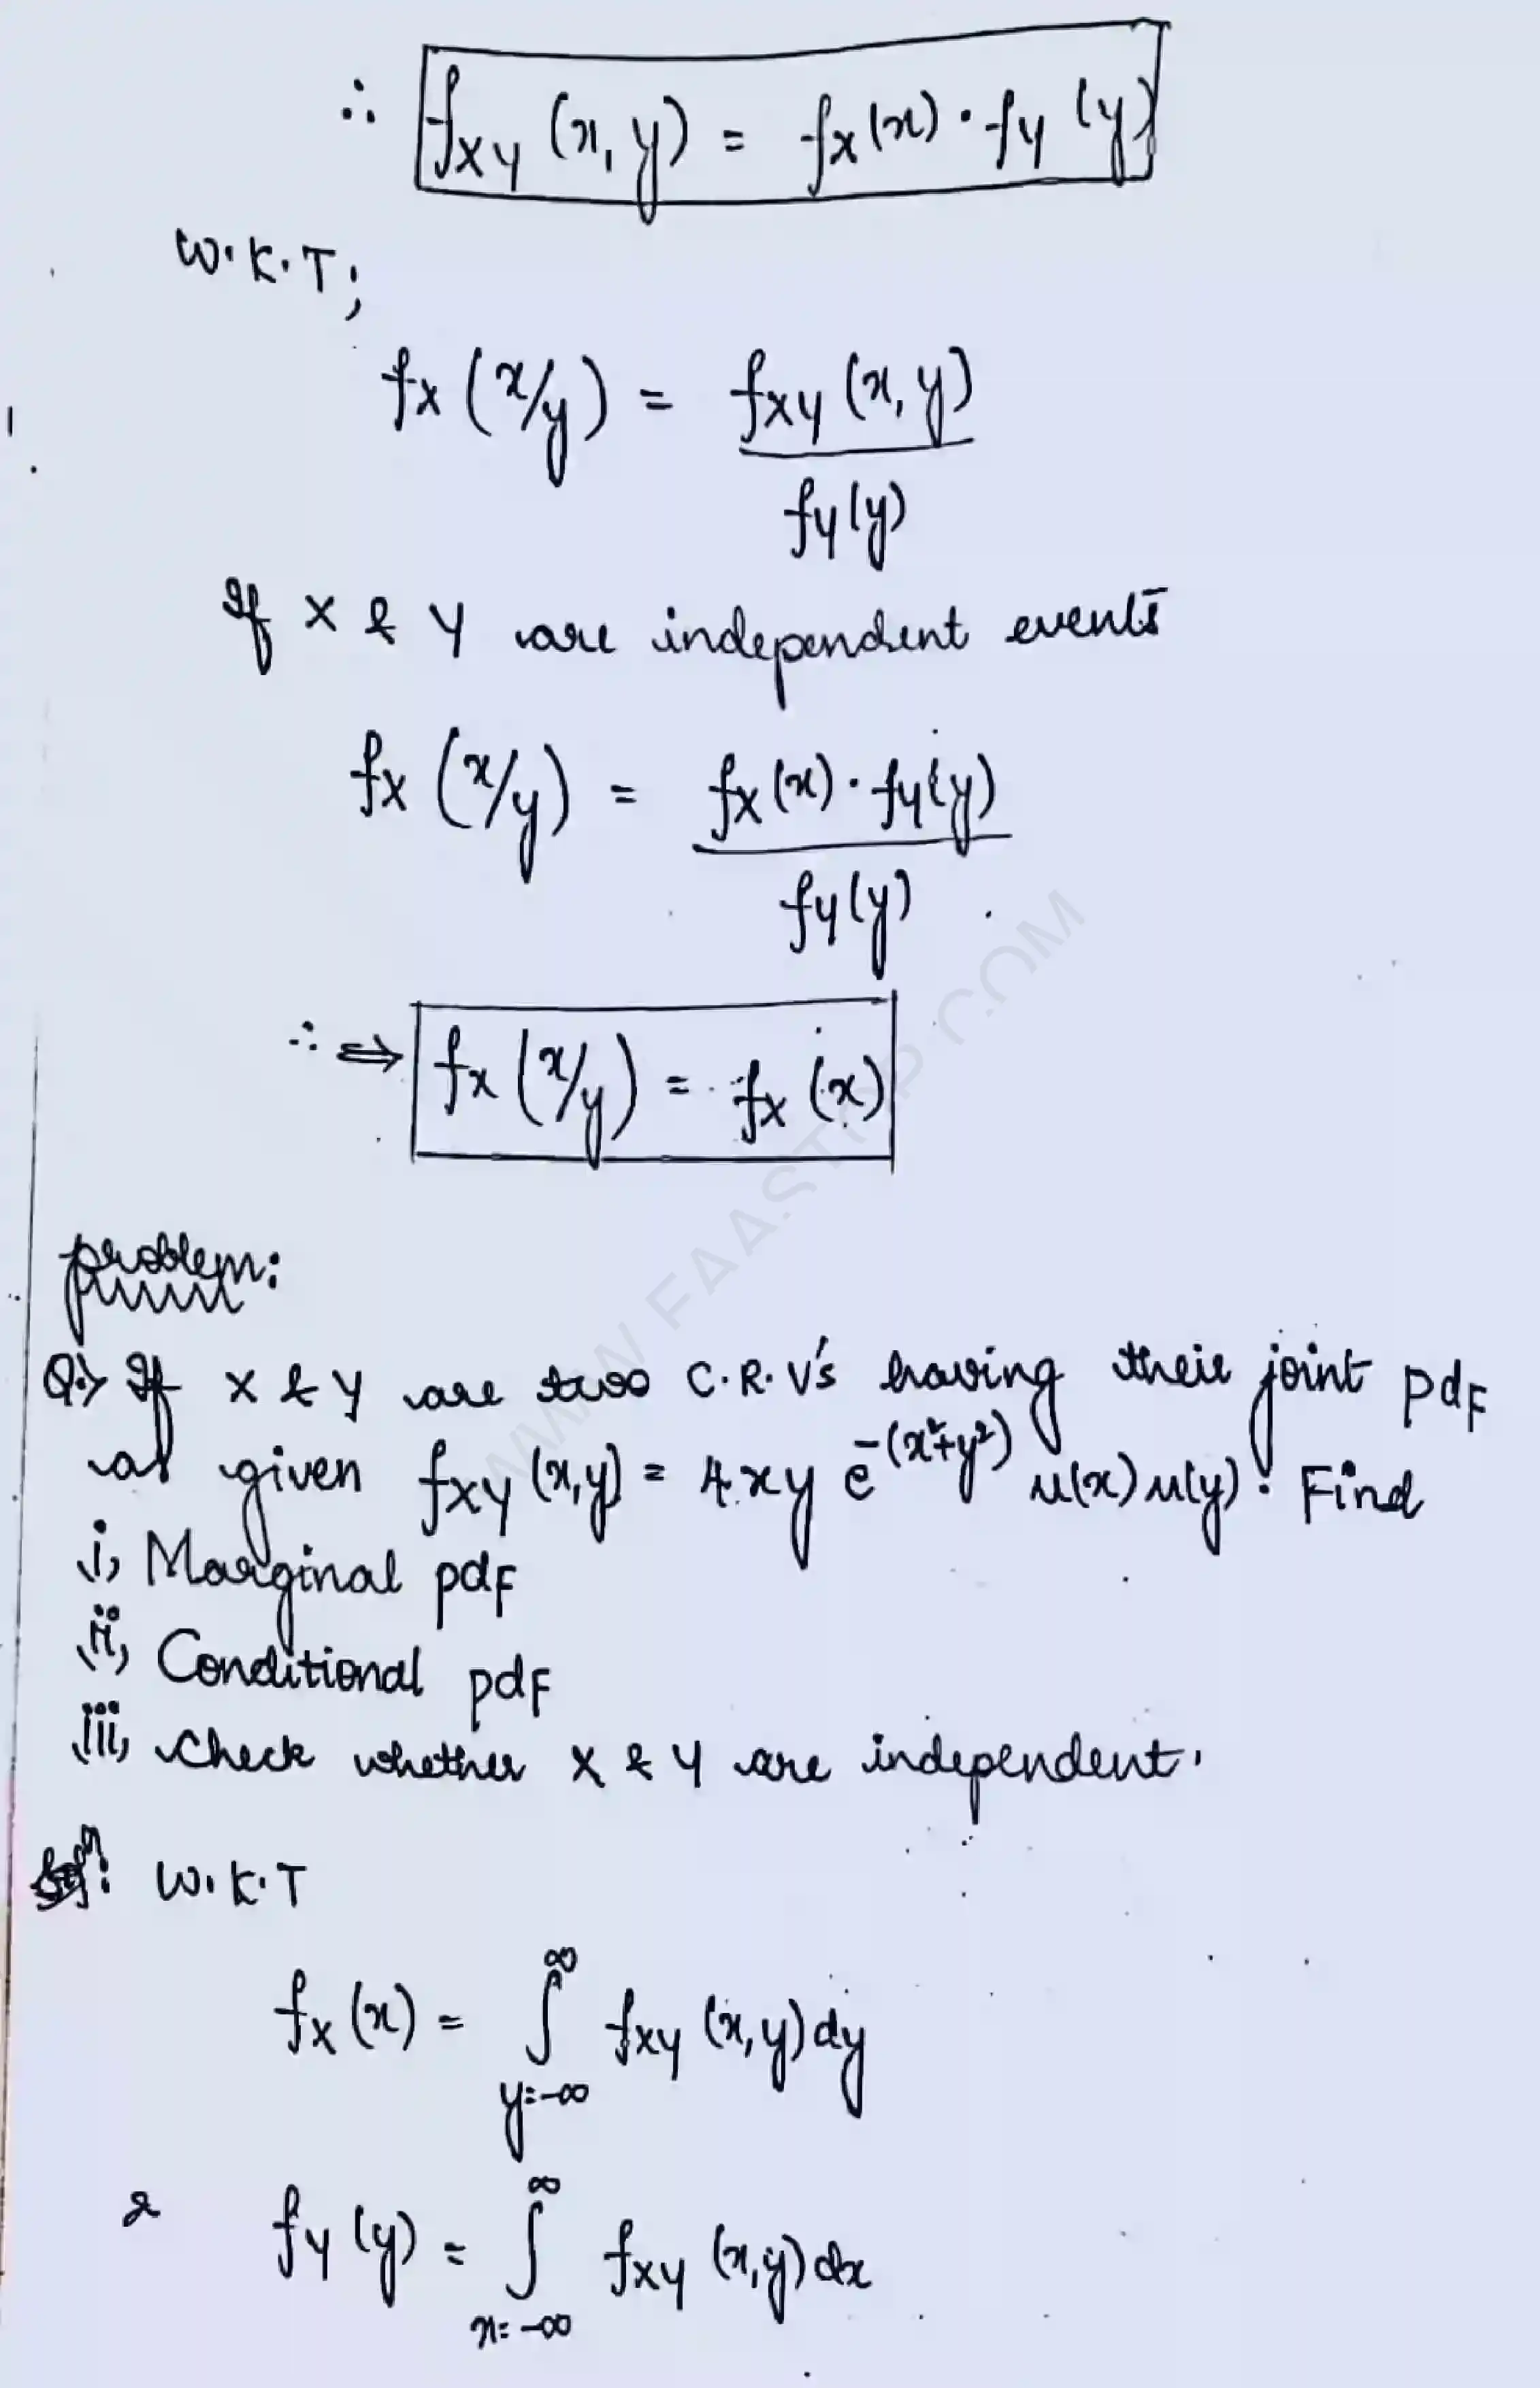 ∴ fXY (x, y) = fX(x) · fY (y)
W.K.T;
fX (x/y) = fXY (x, y)
fY(y)
If X & Y are independent events
fX (x/y) = fX(x) · fY(y)
fY(y)
∴ ⇒ fX (x/y) = fX (x)
problem:
Q:> If X & Y are two C.R.V's having their joint pdF
as given fXY (x,y) = 4xy e^-(x²+y²) u(x) u(y). Find
i, Marginal pdF
ii, Conditional pdF
iii, Check whether X & Y are independent.
Solⁿ: W.K.T
fX (x) = ∫ y=-∞ ^∞ fXY (x, y) dy
& fY (y) = ∫ x=-∞ ^∞ fXY (x, y) dx
WWW.FAASTOP.COM